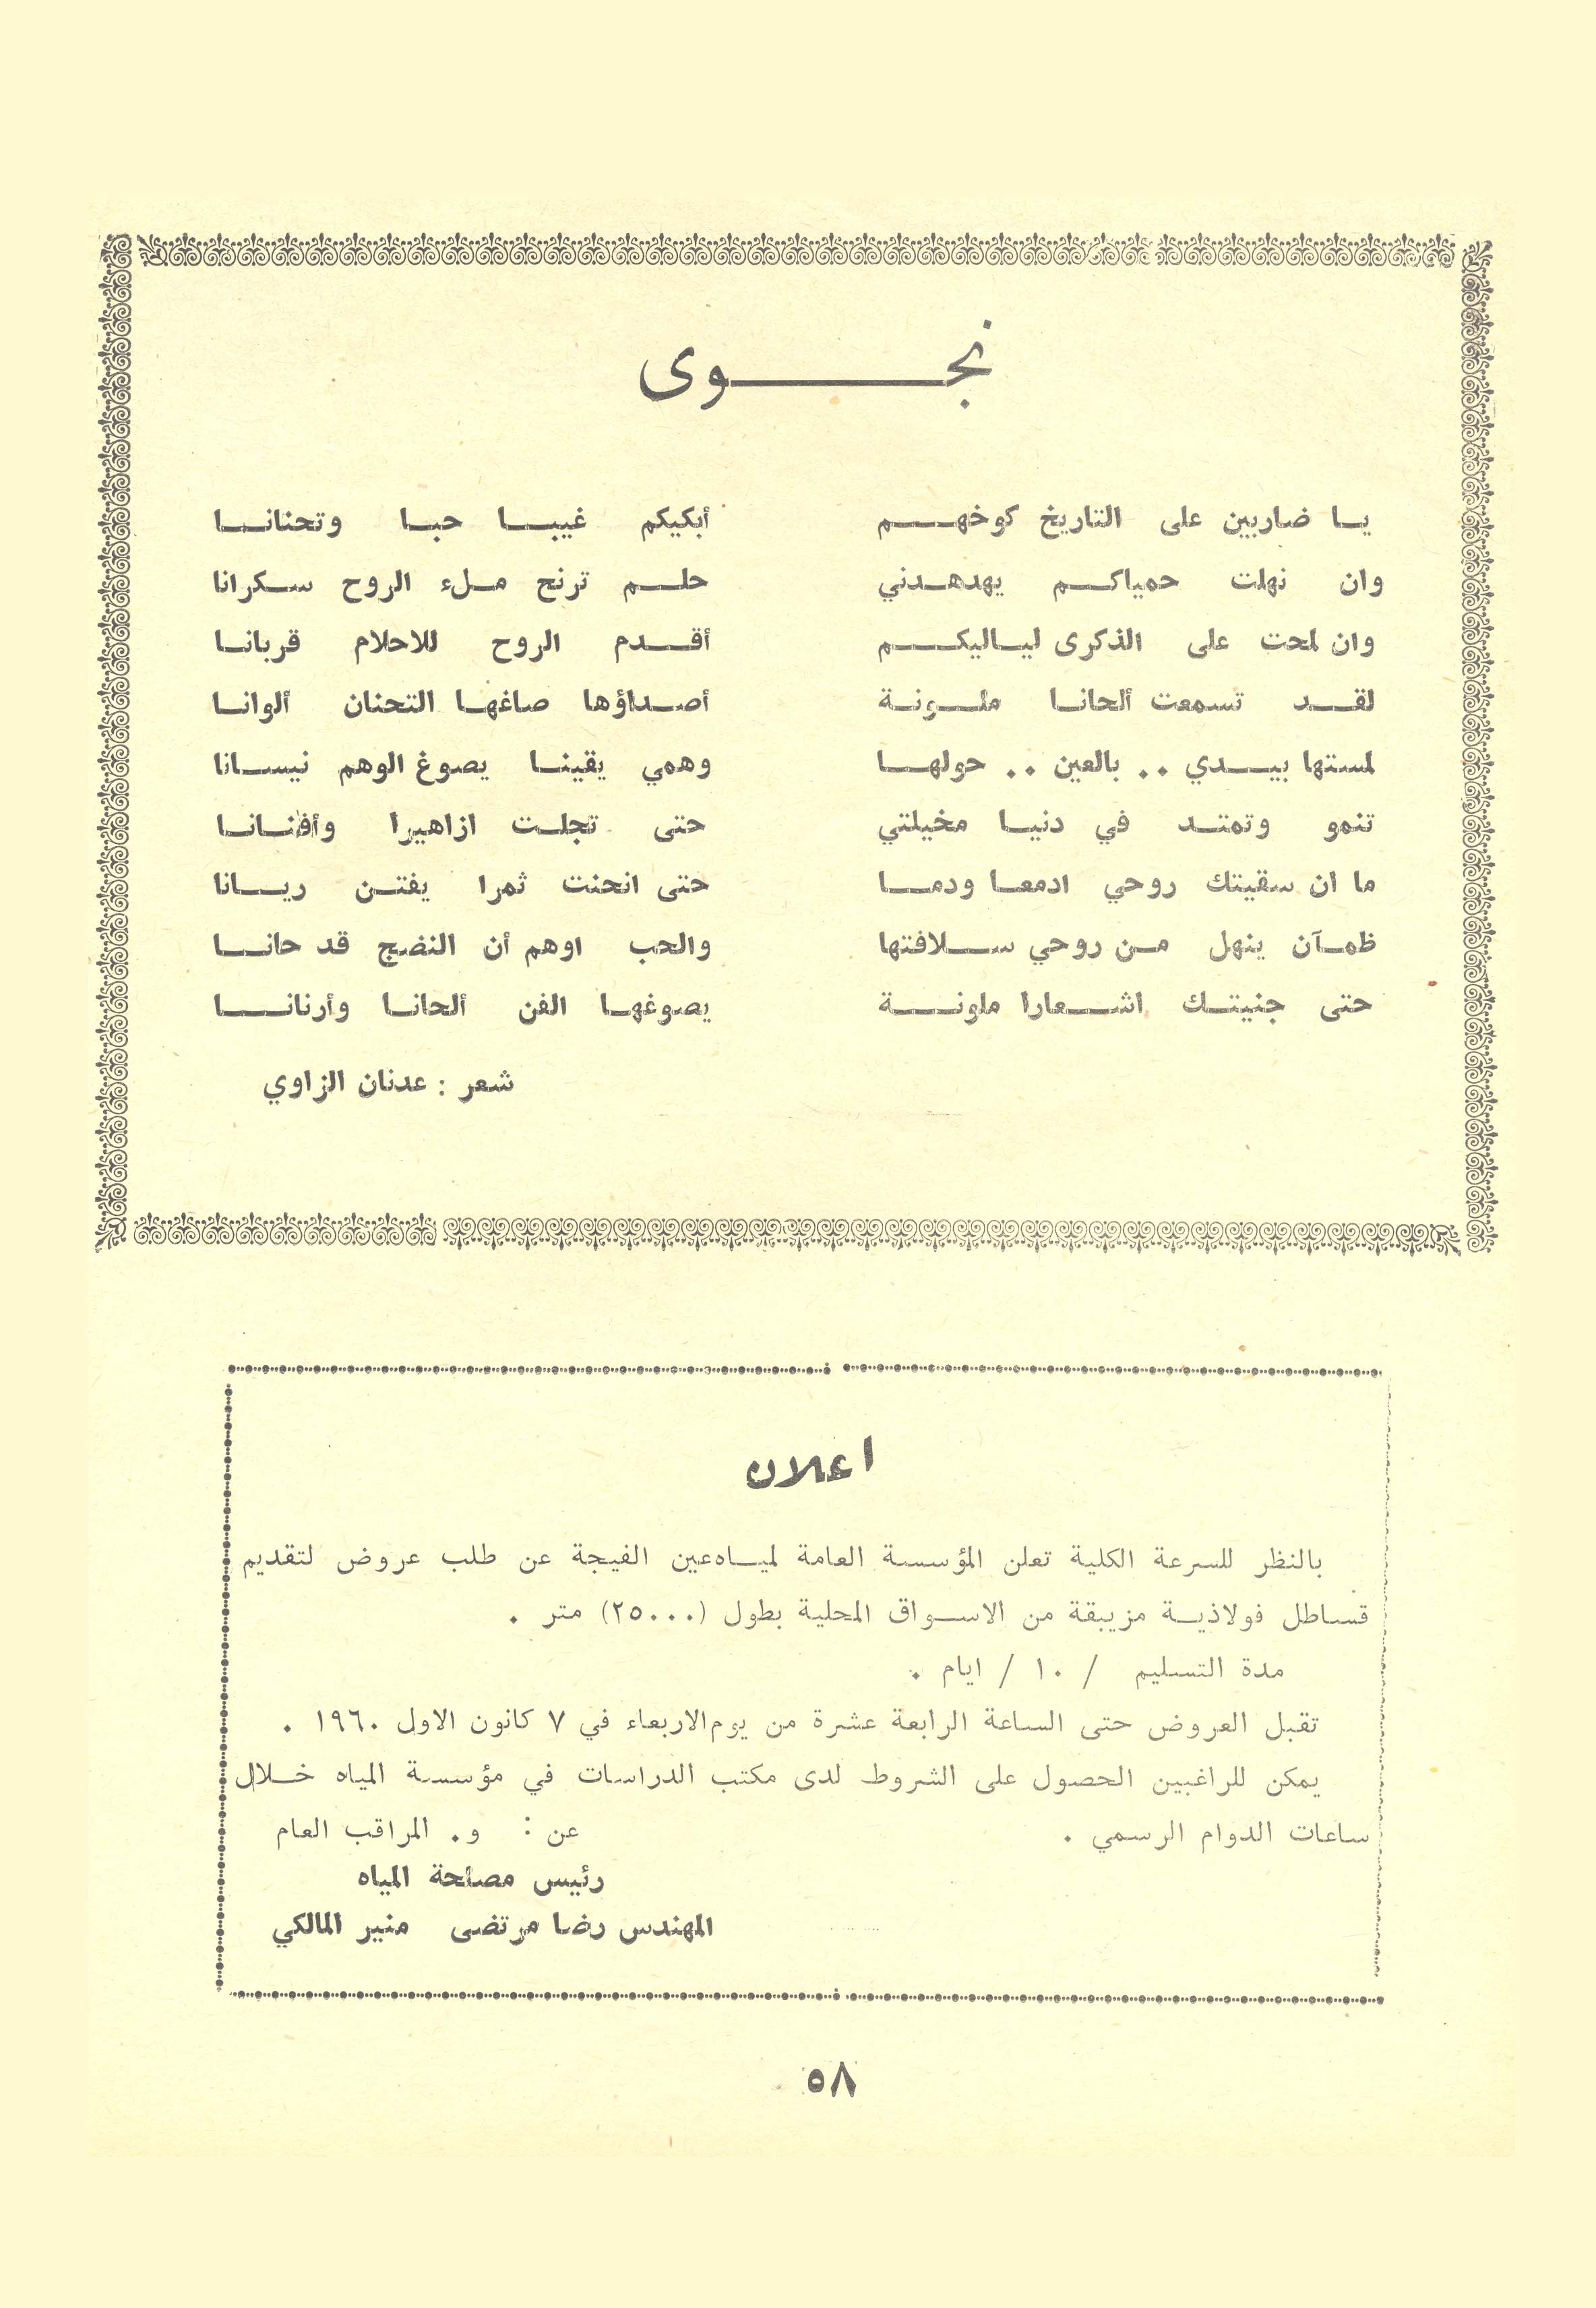 نجوى
يا ضاربين على التاريخ كوخهم أبكيكم غيبا حبا وتحنانا
وان نهلت حمياكم يهدهدني حلم ترنح ملء الروح سكرانا
وان لمحت على الذكرى لياليكم أقدم الروح للاحلام قربانا
لقد تسمعت ألحانا ملونة أصداؤها صاغها التحنان ألوانا
لمستها بيدي .. بالعين .. حولها وهمي يقينا يصوغ الوهم نيسانا
تنمو وتمتد في دنيا مخيلتي حتى تجلت ازاهيرا وأفنانا
ما ان سقيتك روحي ادمعا ودما حتى انحنت ثمرا يفتن ريانا
ظمآن ينهل من روحي سلافتها والحب اوهم أن النضج قد حانا
حتى جنيتك اشعارا ملونة يصوغها الفن ألحانا وأرنانا
شعر : عدنان الزاوي
اعلان
بالنظر للسرعة الكلية تعلن المؤسسة العامة لمياه عين الفيجة عن طلب عروض لتقديم
قساطل فولاذية مزيبقة من الاسواق المحلية بطول (٢٥٠٠٠) متر .
مدة التسليم / ١٠ / ايام .
تقبل العروض حتى الساعة الرابعة عشرة من يوم الاربعاء في ٧ كانون الاول ١٩٦٠ .
يمكن للراغبين الحصول على الشروط لدى مكتب الدراسات في مؤسسة المياه خلال
ساعات الدوام الرسمي .
عن : و. المراقب العام
رئيس مصلحة المياه
المهندس رضا مرتضى منير المالكي
٥٨